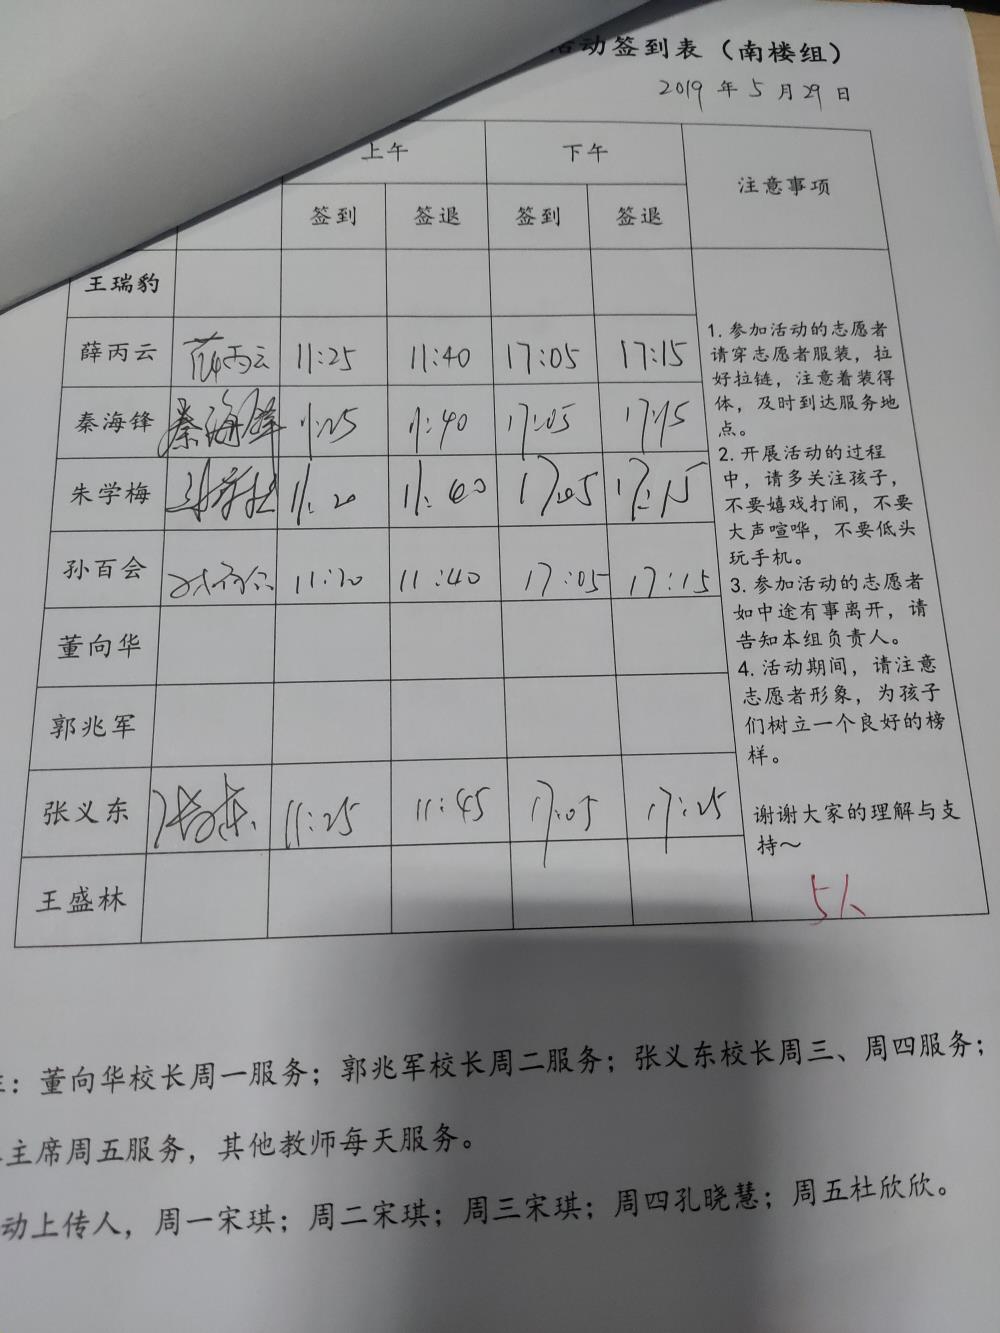 动签到表（南楼组）
2019 年 5 月 29 日
上午 下午 注意事项
签到 签退 签到 签退
王瑞豹
薛丙云 薛丙云 11:25 11:40 17:05 17:15
秦海锋 秦海锋 11:25 11:40 17:05 17:15
朱学梅 11:20 11:40 17:05 17:15
孙百会 孙百会 11:20 11:40 17:05 17:15
董向华
郭兆军
张义东 张义东 11:25 11:45 17:05 17:25
王盛林
1. 参加活动的志愿者
请穿志愿者服装，拉
好拉链，注意着装得
体，及时到达服务地
点。
2. 开展活动的过程
中，请多关注孩子，
不要嬉戏打闹，不要
大声喧哗，不要低头
玩手机。
3. 参加活动的志愿者
如中途有事离开，请
告知本组负责人。
4. 活动期间，请注意
志愿者形象，为孩子
们树立一个良好的榜
样。
谢谢大家的理解与支
持～
5人
：董向华校长周一服务；郭兆军校长周二服务；张义东校长周三、周四服务；
主席周五服务，其他教师每天服务。
动上传人，周一宋琪；周二宋琪；周三宋琪；周四孔晓慧；周五杜欣欣。